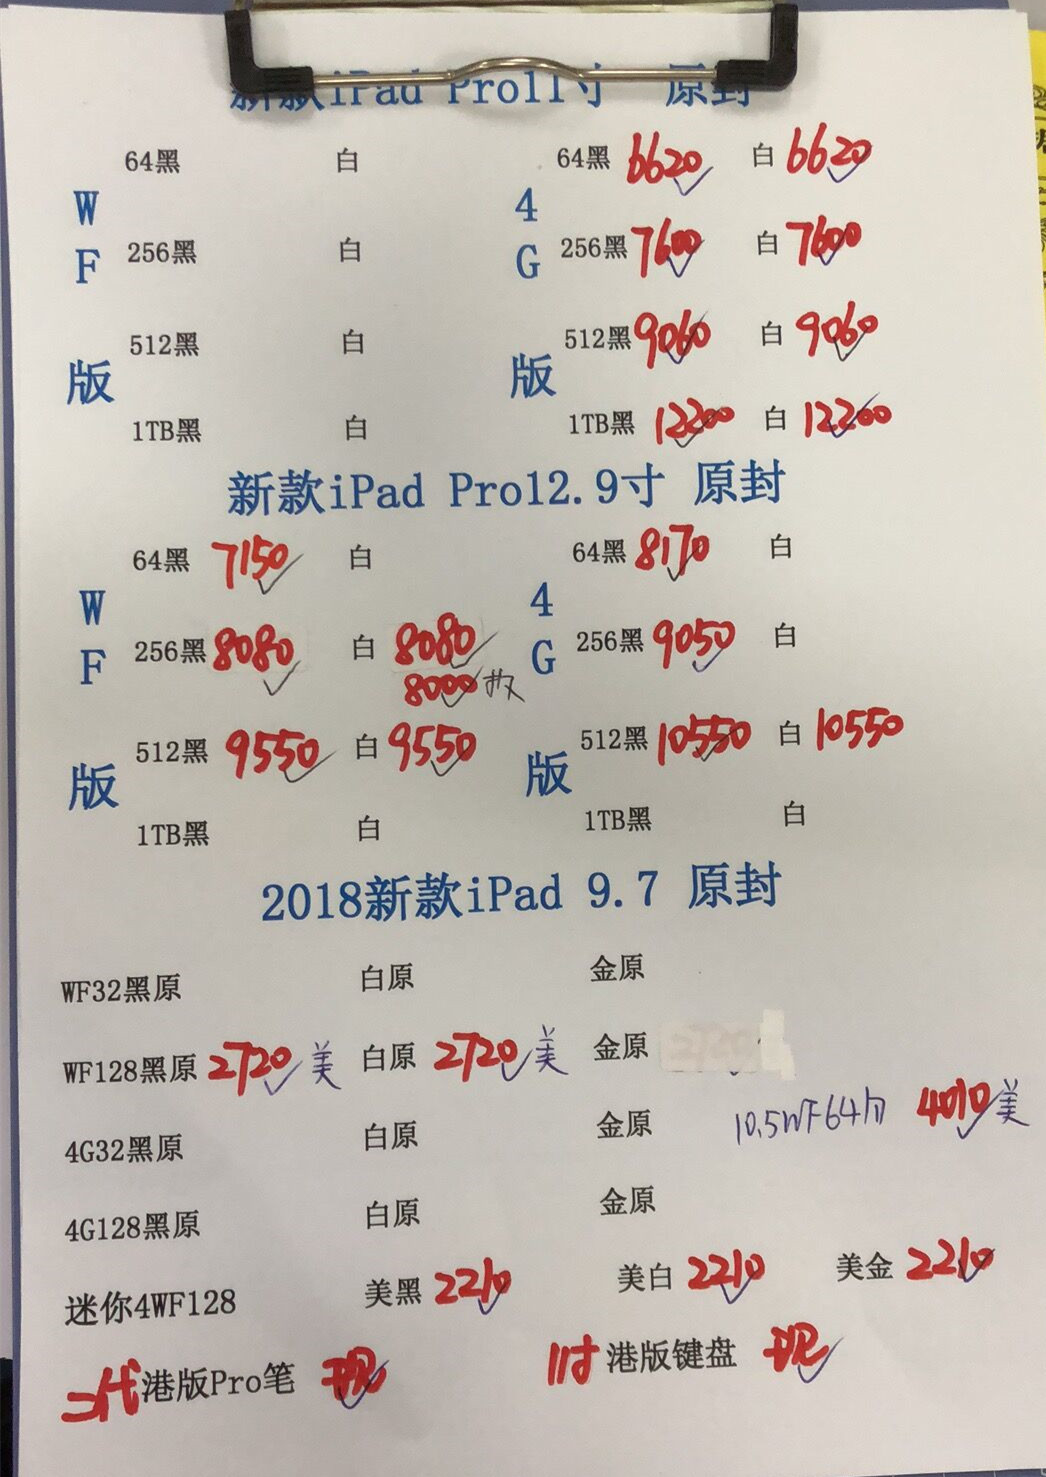 新款iPad Pro11寸 原封
64黑 白 64黑 6620 白 6620
W 4
F 256黑 白 G 256黑 7600 白 7600
512黑 白 512黑 9060 白 9060
版 版
1TB黑 白 1TB黑 12200 白 12200
新款iPad Pro12.9寸 原封
64黑 7150 白 64黑 8170 白
W 4
F 256黑 8080 白 8080 G 256黑 9050 白
8000
512黑 9550 白 9550 512黑 10550 白 10550
版 版
1TB黑 白 1TB黑 白
2018新款iPad 9.7 原封
WF32黑原 白原 金原
WF128黑原 2720 美 白原 2720 美 金原 2720
10.5WF64 4010 美
4G32黑原 白原 金原
4G128黑原 白原 金原
迷你4WF128 美黑 2210 美白 2210 美金 2210
二代 港版Pro笔 现 11寸 港版键盘 现